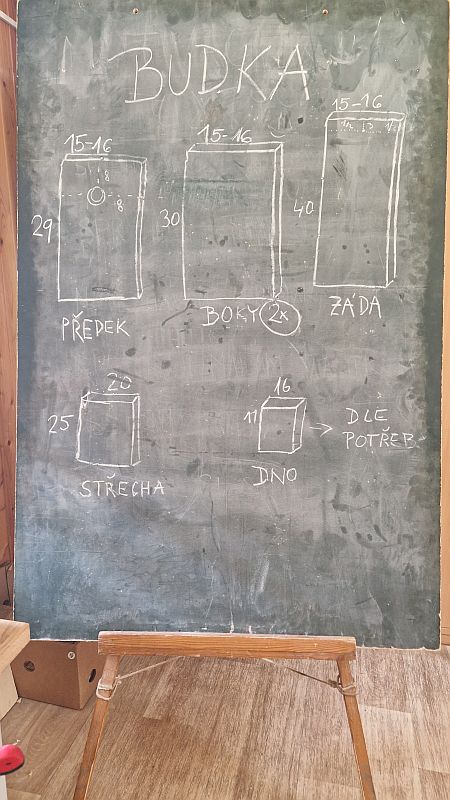 BUDKA
15-16
8
8
29
PŘEDEK
15-16
30
BOKY 2x
15-16
40
ZÁDA
20
25
STŘECHA
16
DNO
DLE
POTŘEB